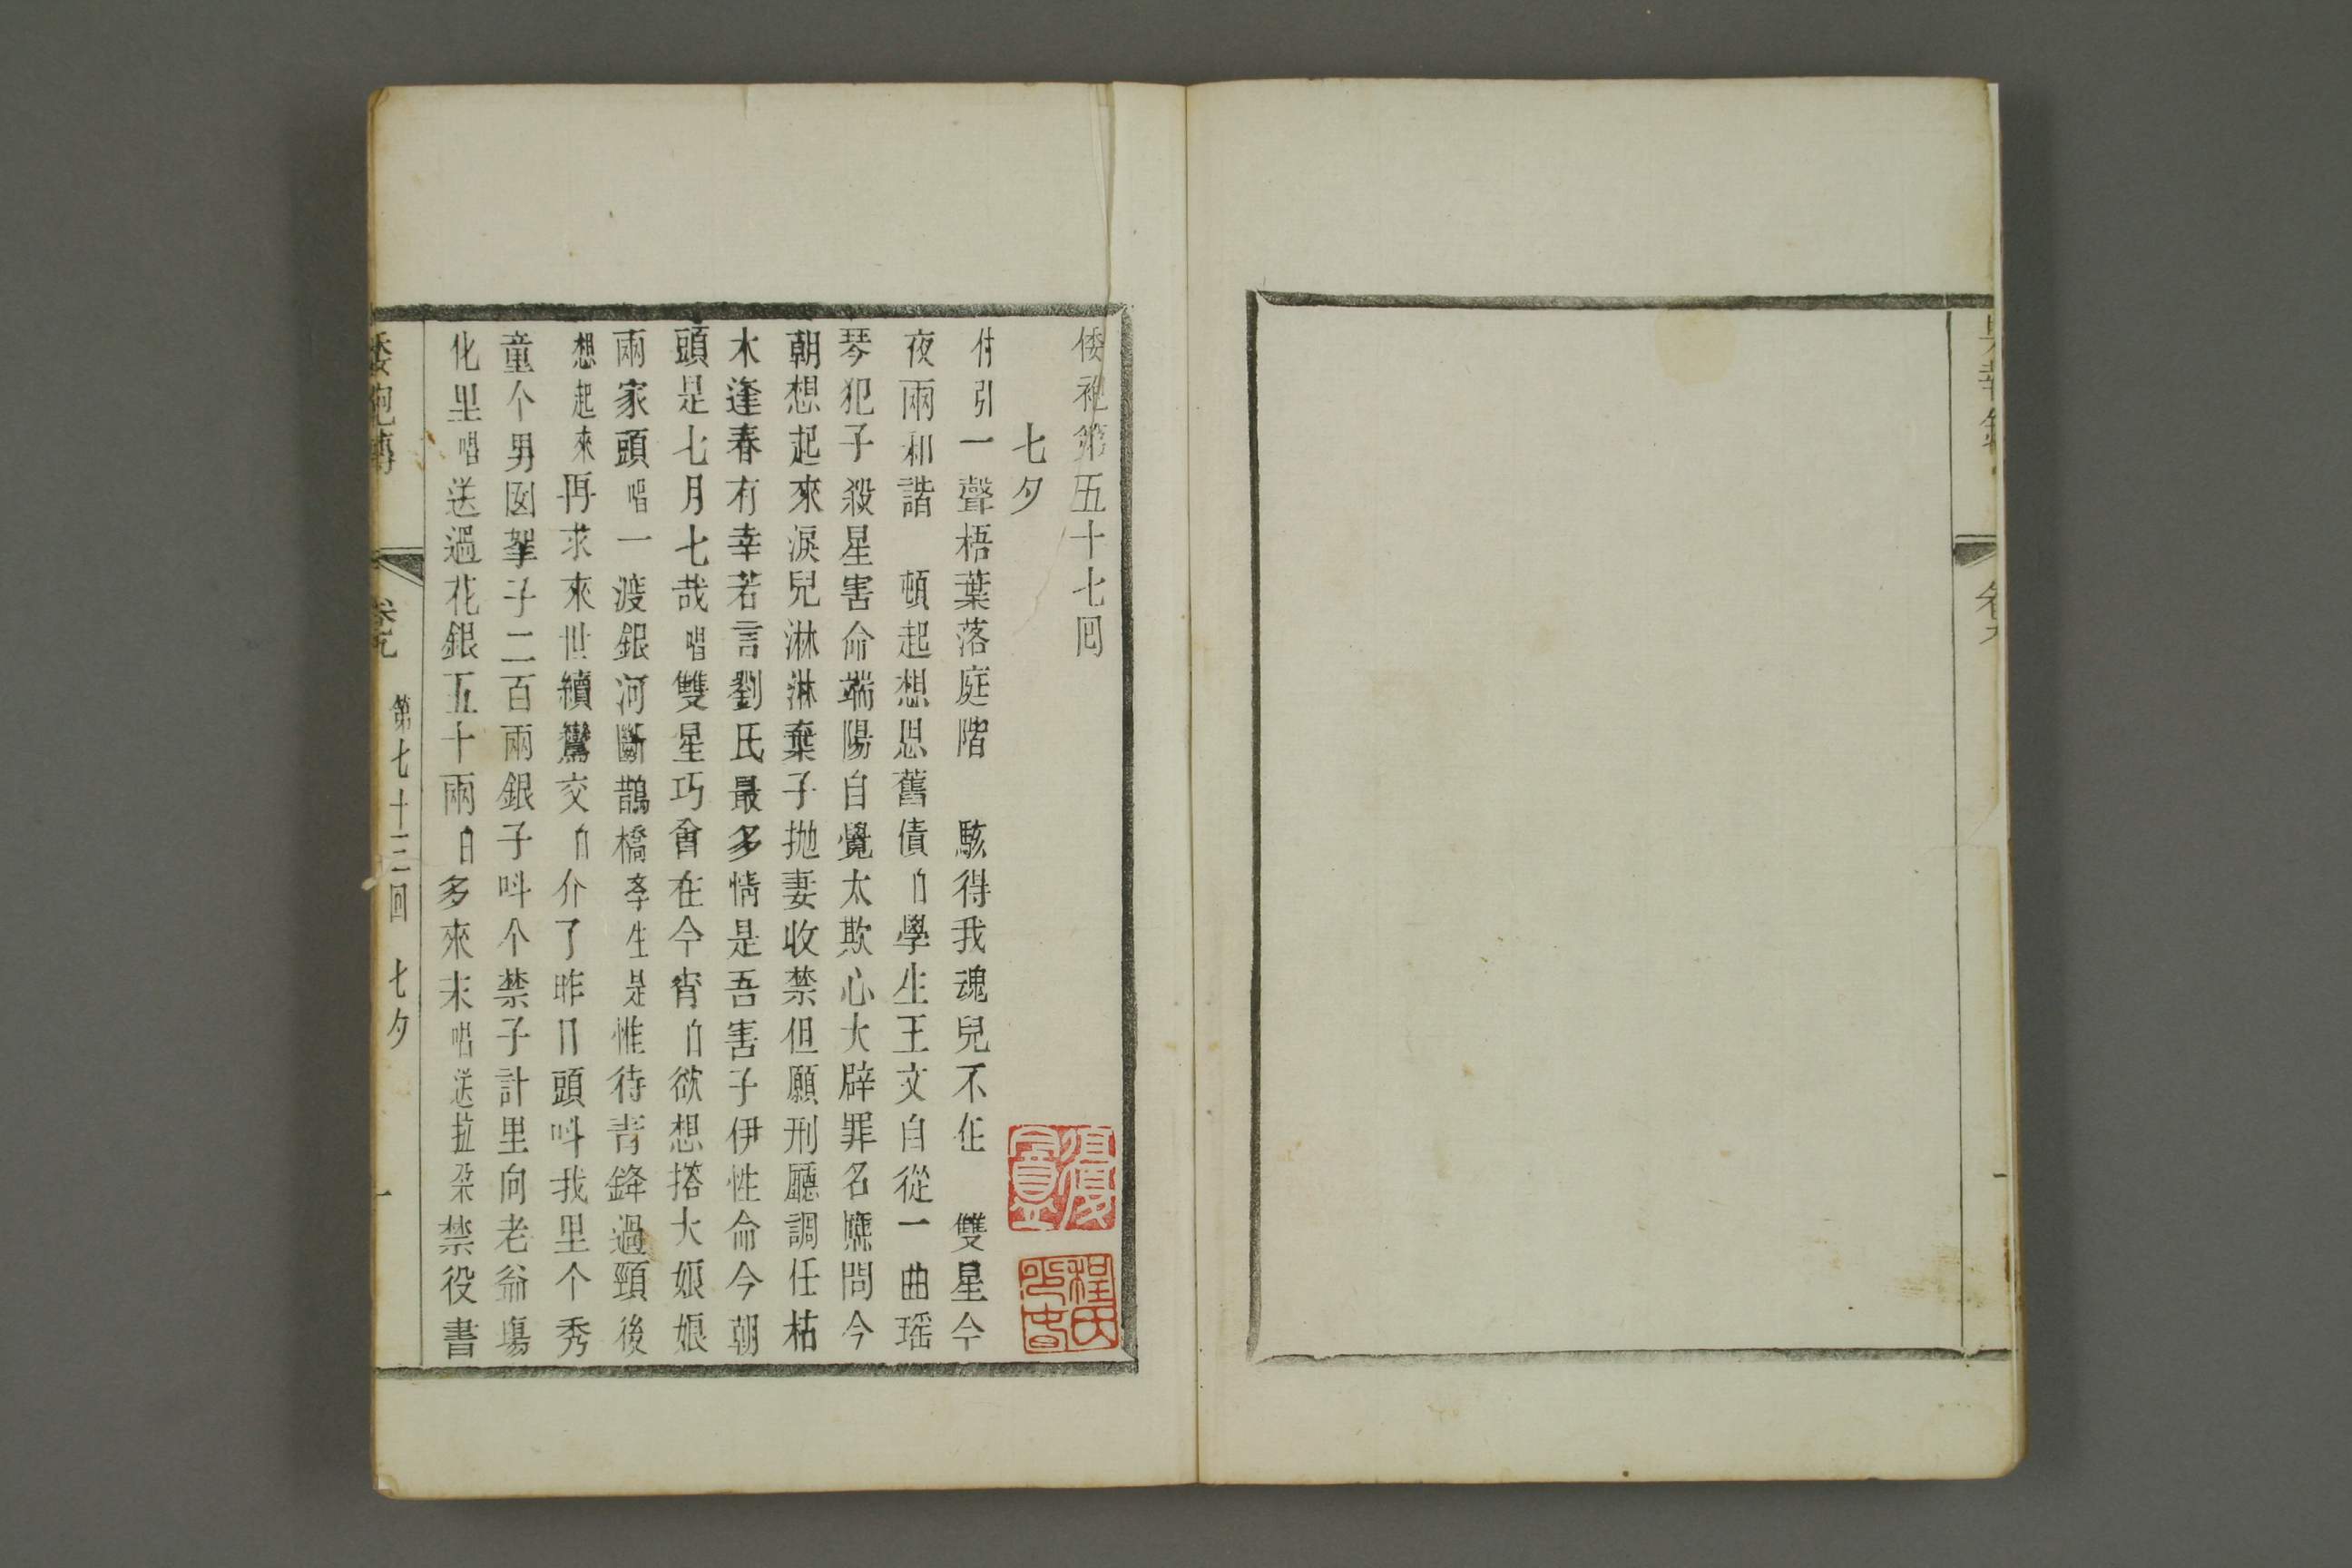 倭袍第五十七囘
七夕
付引一聲梧葉落庭階　駭得我魂兒不在　雙星今
夜兩和諧　頓起想思舊債白學生王文自從一曲瑤
琴犯子殺星害命端陽自覺太欺心大辟罪名熈問今
朝想起來淚兒淋淋棄子拋妻收禁但願刑廳調任枯
木逢春有幸若言劉氏最多情是吾害子伊性命今朝
頭是七月七哉唱雙星巧會在今宵白欲想搭大娘娘
兩家頭唱一渡銀河斷鵲橋李生是惟待青鋒過頸後
想起來再求來世續鸞交白介了昨日頭呌我里个秀
童个男囡拏子二百兩銀子呌个禁子計里向老爺塲
化里唱送過花銀五十兩白多來末唱送拉朶禁役書
倭袍傳
卷九
第七十三回　七夕
一
程氏